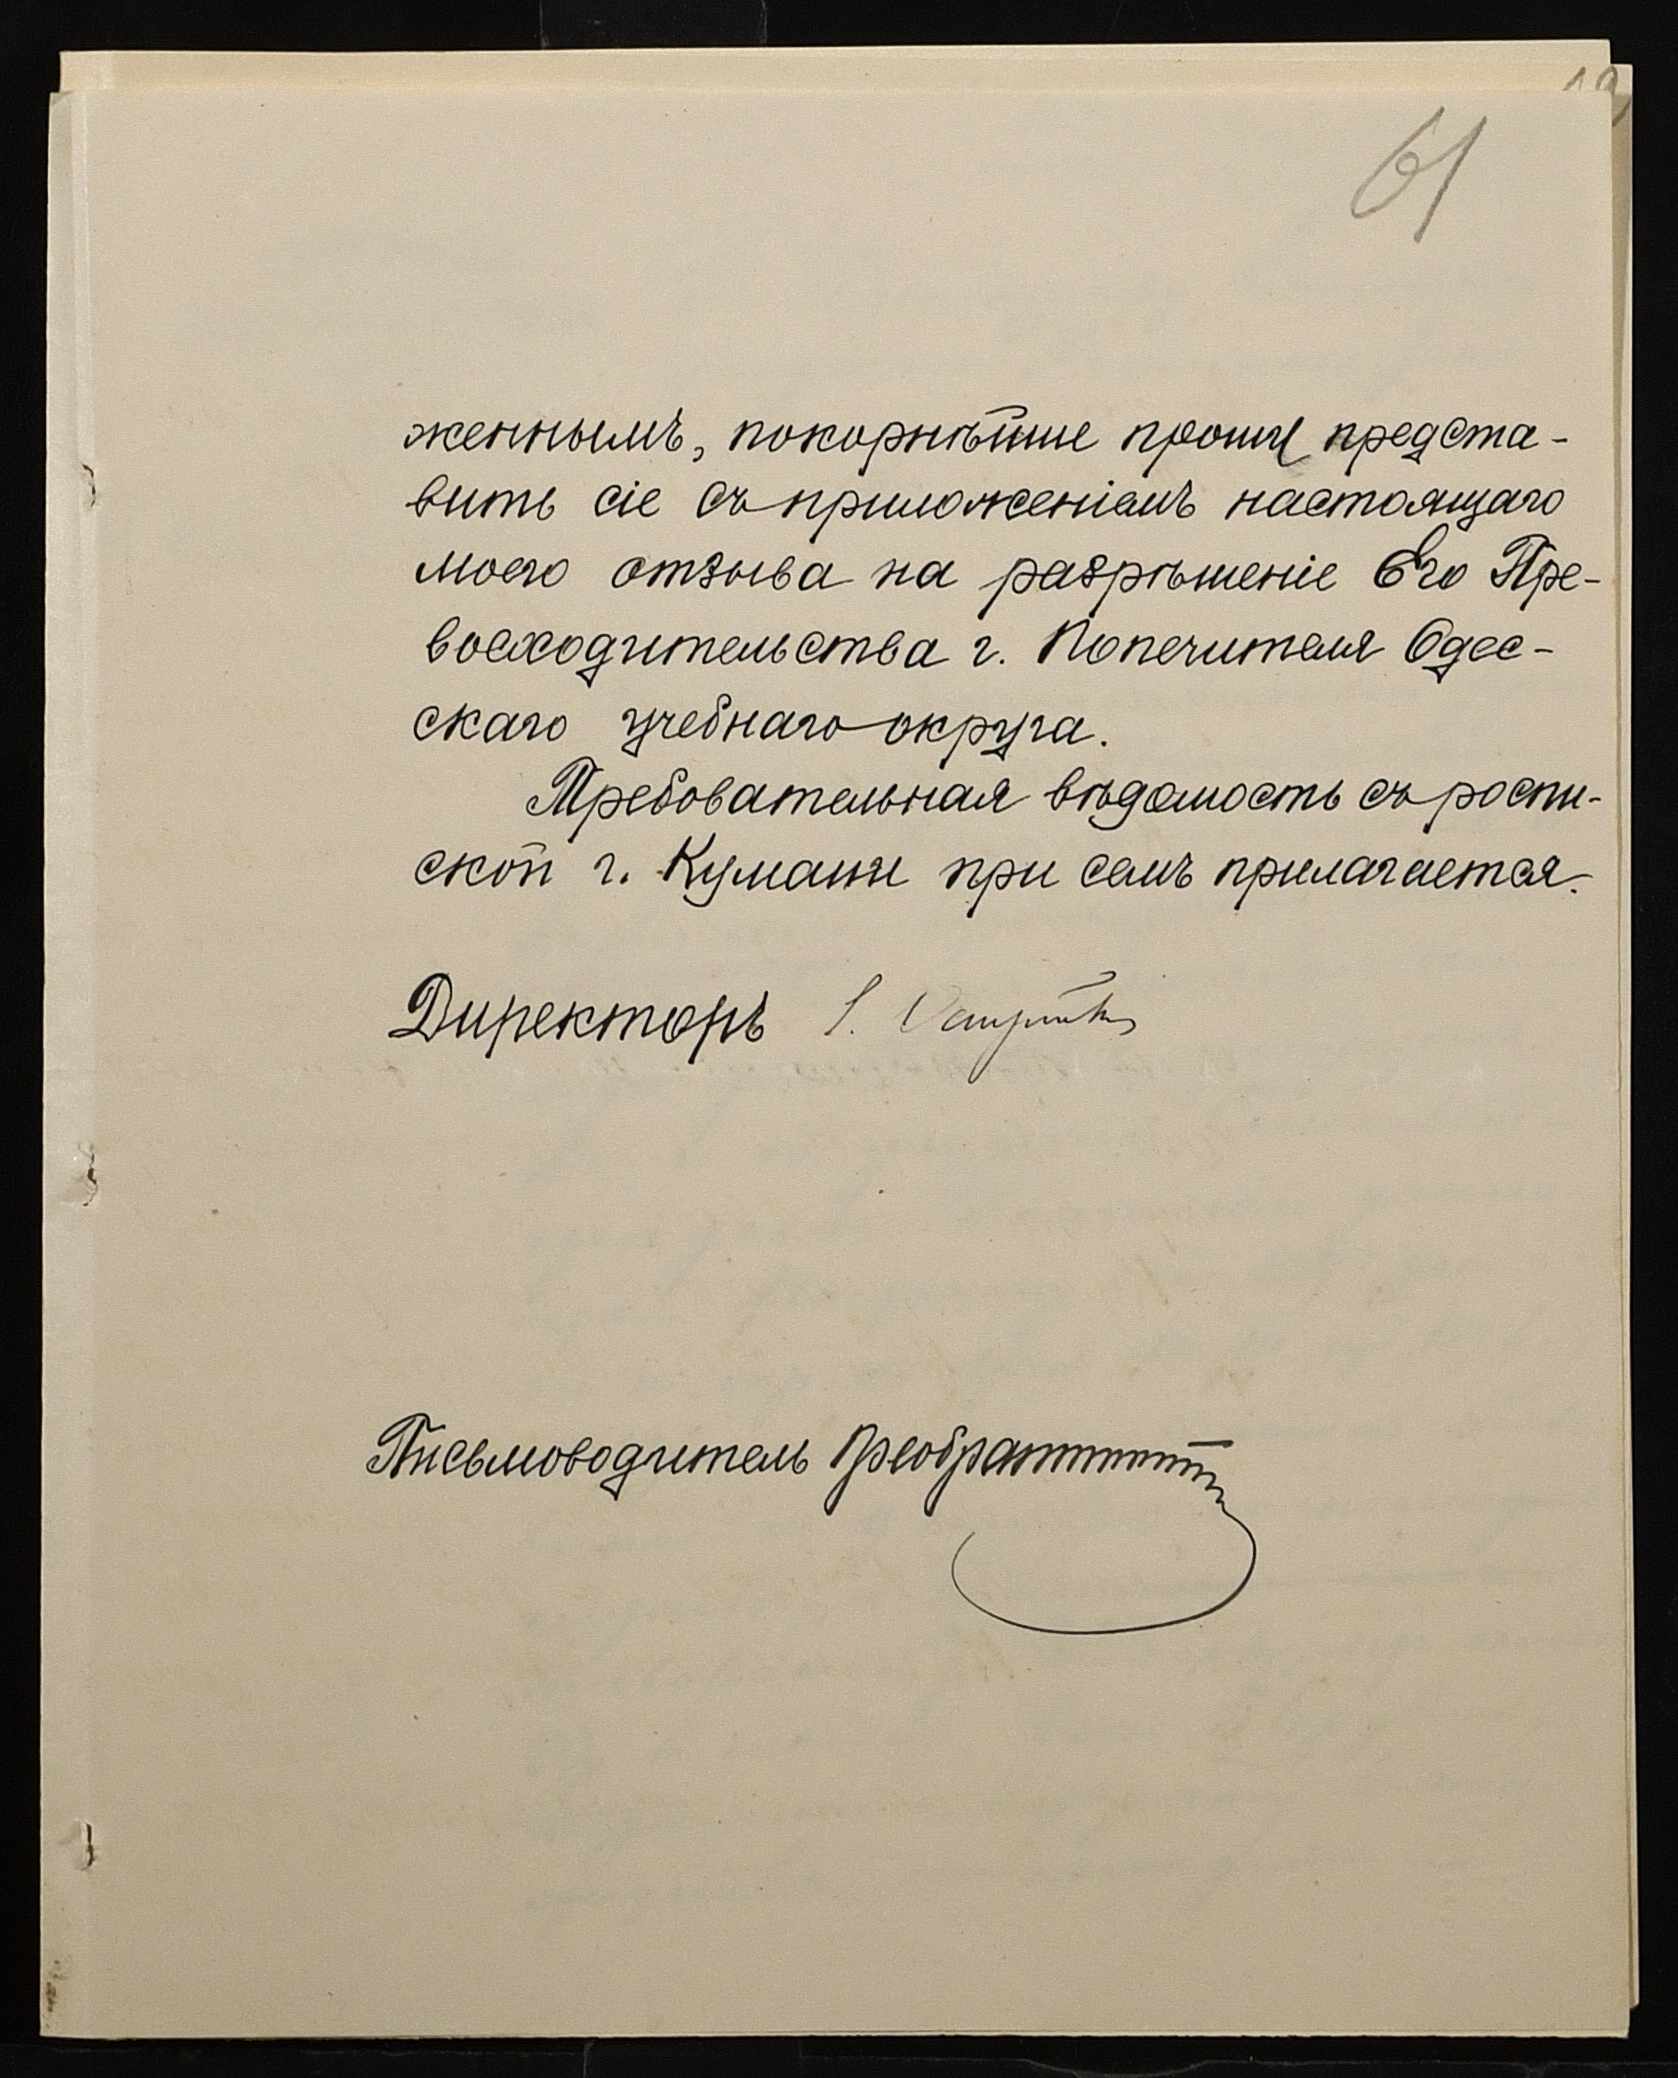 61
женнымъ, покорнѣйше прошу предста-
вить сіе съ приложеніемъ настоящаго
моего отзыва на разрѣшеніе Его Пре-
восходительства г. Попечителя Одес-
скаго учебнаго округа.
Требовательная вѣдомость съ роспи-
ской г. Кумани при семъ прилагается.
Директоръ
Письмоводитель